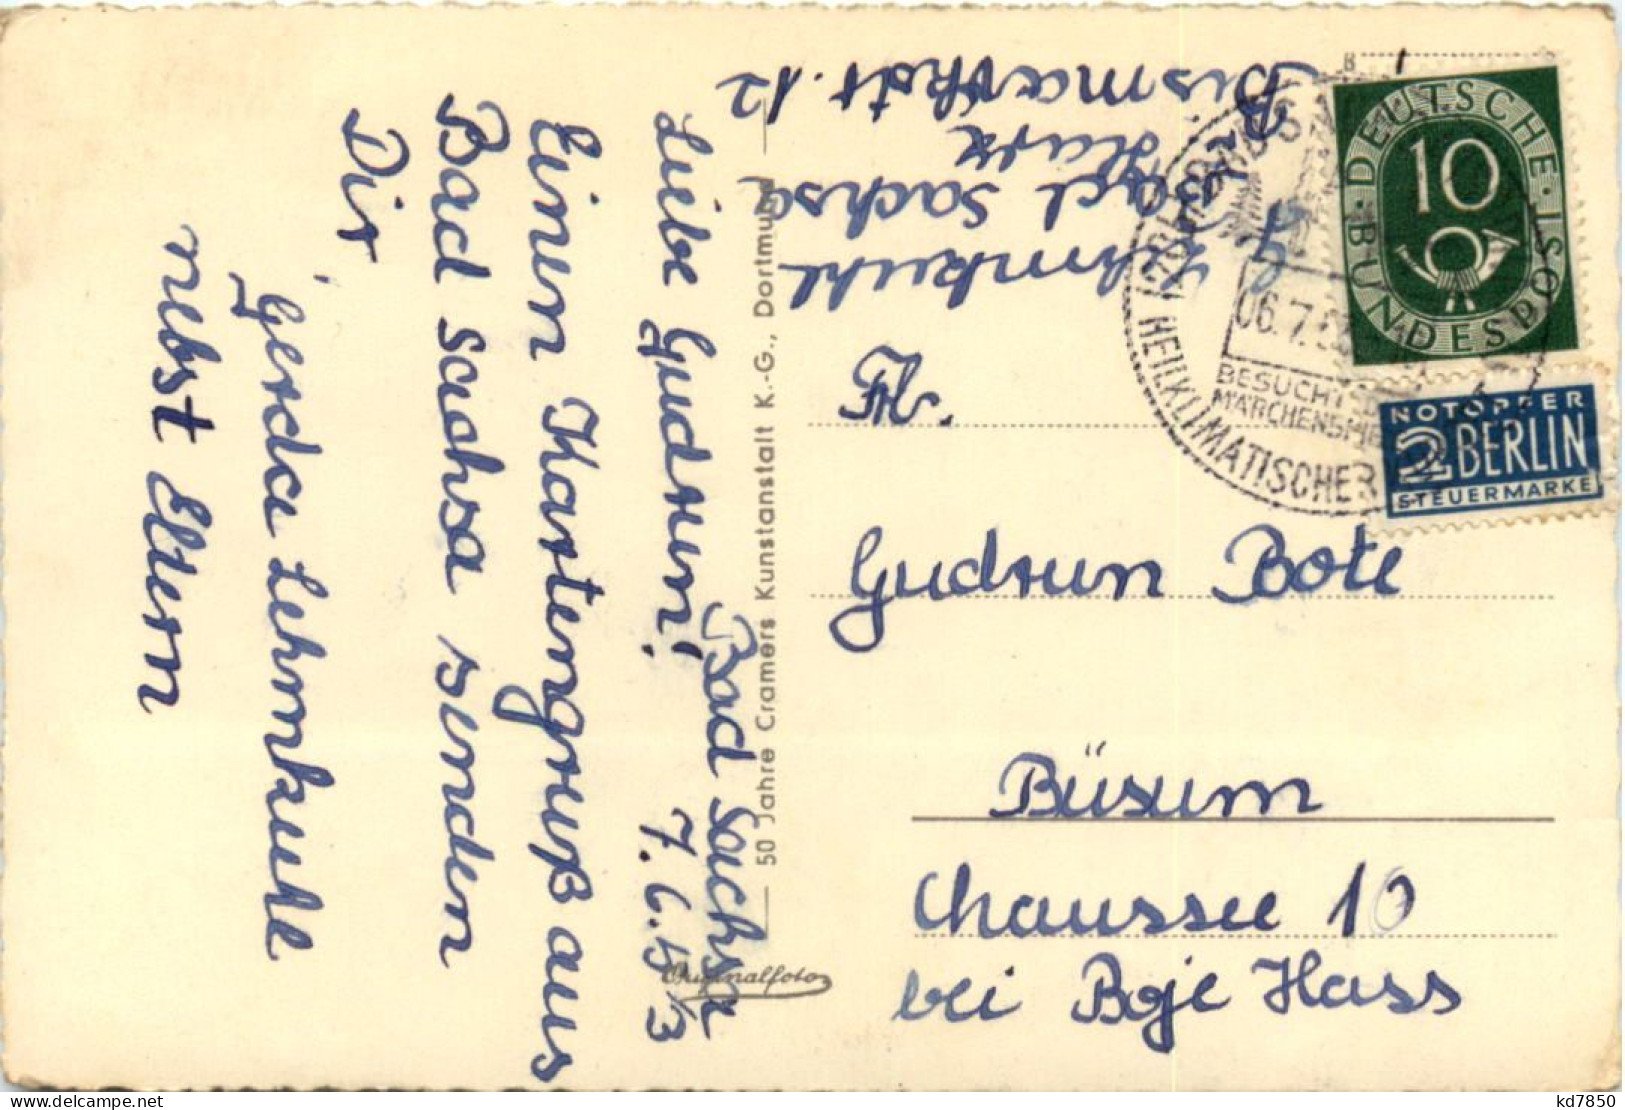 Bad Sachsa
7.6.53
Liebe Gudrun!
Einen Kartengruß aus
Bad Sachsa senden
Dir
Gerda Lehmkuhl
nebst Eltern
50 Jahre Cramers Kunstanstalt K.-G., Dortmund
Originalfoto
G. Lehmkuhl
Bad Sachsa
Harz
Bismarkstr. 12
DEUTSCHE BUNDESPOST
10
NOTOPFER
2 BERLIN
STEUERMARKE
06.7.
BESUCHT
HEILKLIMATISCHER
Frl.
Gudrun Bote
Büsum
Chaussee 10
bei Boje Hass
kd7850